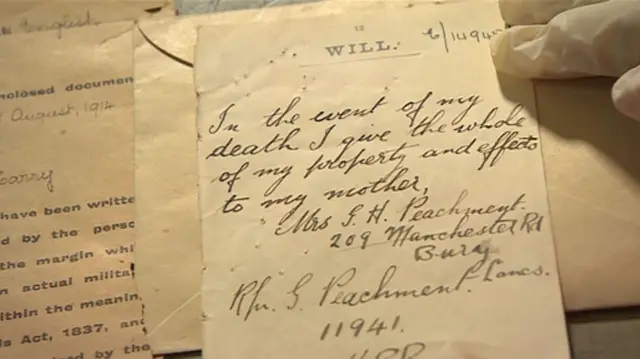 English
nclosed documen
August, 1914
have been writte
d by the perso
the margin whi
n actual milita
ithin the meanin
ls Act, 1837, and
12
WILL.
E/14940
In the event of my
death I give the whole
of my property and effects
to my mother,
Mrs G. H. Peachment.
209 Manchester Rd
Bury
Lancs.
Rfn. G. Peachment.
11941.
KRR